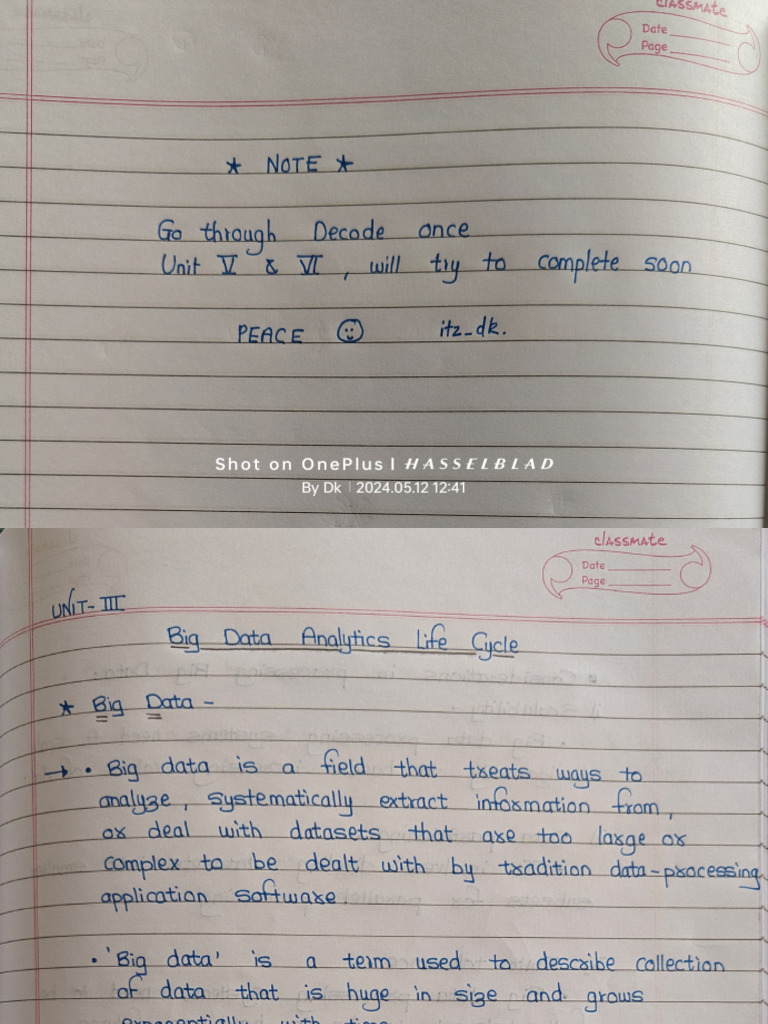 classmate
Date
Page
★ NOTE ★
Go through Decode once
Unit V & VI , will try to complete soon
PEACE ☺ itz_dk.
Shot on OnePlus | HASSELBLAD
By Dk | 2024.05.12 12:41
classmate
Date
Page
UNIT- III
Big Data Analytics Life Cycle
★ Big Data -
→ • Big data is a field that treats ways to
analyze, systematically extract information from,
or deal with datasets that are too large or
complex to be dealt with by tradition data-processing
application software
• 'Big data' is a term used to describe collection
of data that is huge in size and grows
exponentially with time